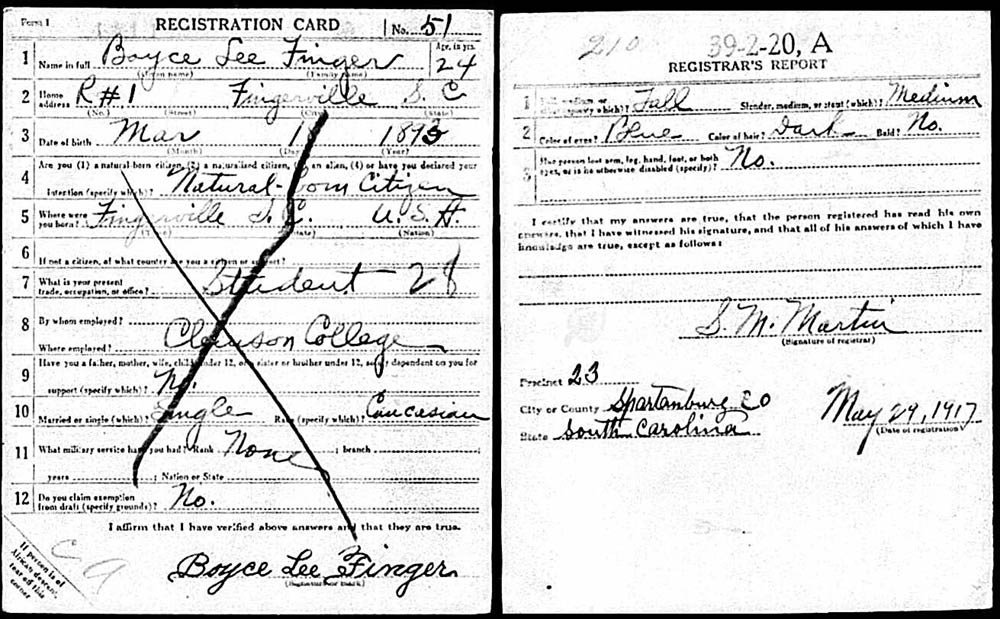 Form 1 REGISTRATION CARD No. 51
1 Name in full Boyce Lee Finger Age, in yrs. 24
(Given name) (Family name)
2 Home address R#1 Fingerville S. C
(No.) (Street) (City) (State)
3 Date of birth Mar 1893
(Month) (Day) (Year)
Are you (1) a natural-born citizen, (2) a naturalized citizen, (3) an alien, (4) or have you declared your
4 intention (specify which)? Natural-born Citizen
5 Where were you born? Fingerville S. C. U. S. A.
(Town) (State) (Nation)
6 If not a citizen, of what country are you a citizen or subject?
7 What is your present trade, occupation, or office? Student 28
8 By whom employed?
Where employed? Clemson College
9 Have you a father, mother, wife, child under 12, or a sister or brother under 12, solely dependent on you for
support (specify which)? No.
10 Married or single (which)? Single Race (specify which)? Caucasian
11 What military service have you had? Rank None ; branch
years ; Nation or State
12 Do you claim exemption from draft (specify grounds)? No.
I affirm that I have verified above answers and that they are true.
Boyce Lee Finger
(Signature or mark)
If person is of
African descent,
tear off this
corner
C A
210 39-2-20, A
REGISTRAR'S REPORT
1 Tall, medium, or short (specify which)? Tall Slender, medium, or stout (which)? Medium
2 Color of eyes? Blue Color of hair? Dark Bald? No.
3 Has person lost arm, leg, hand, foot, or both eyes, or is he otherwise disabled (specify)? No.
I certify that my answers are true, that the person registered has read his own
answers, that I have witnessed his signature, and that all of his answers of which I have
knowledge are true, except as follows:
S. M. Martin
(Signature of registrar)
Precinct 23
City or County Spartanburg Co
State South Carolina
May 29, 1917
(Date of registration)